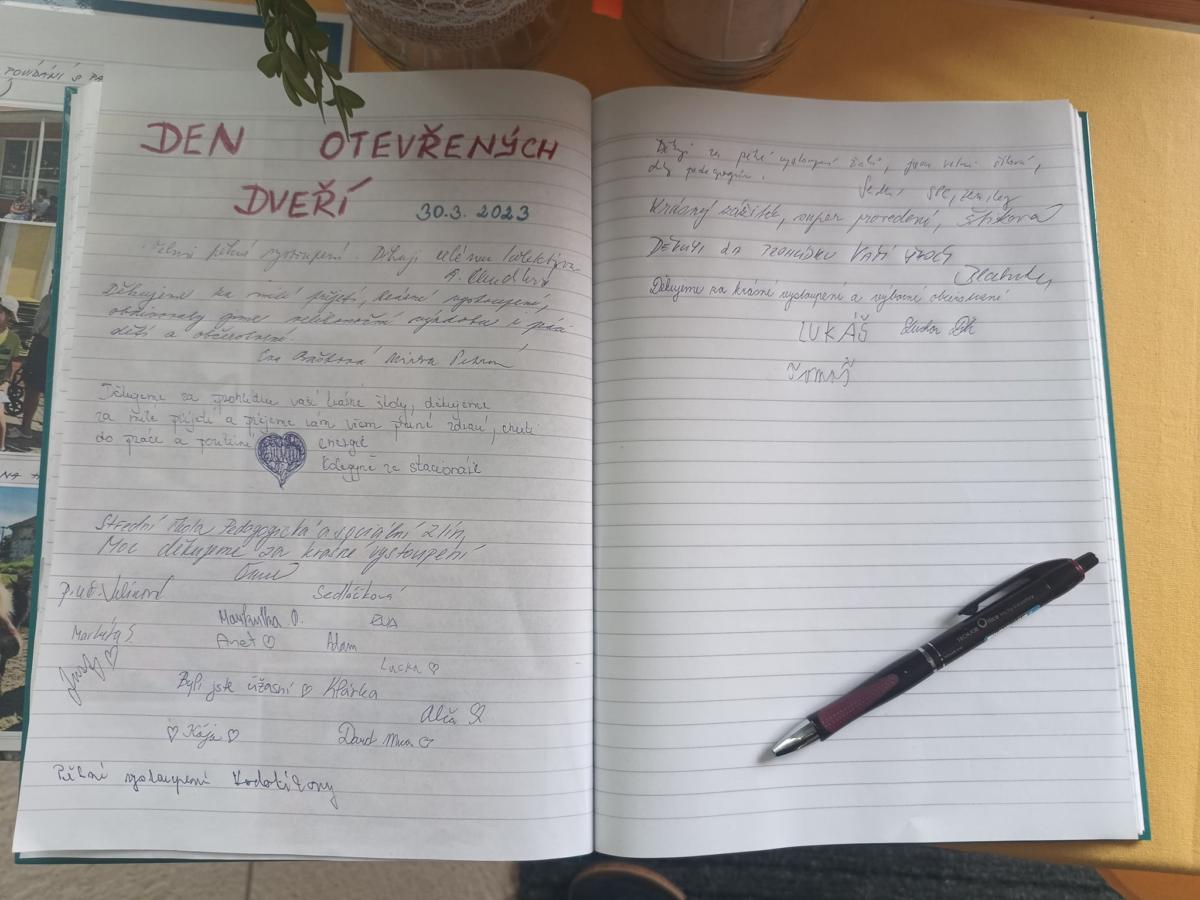 POVÍDÁNÍ S PA
DEN OTEVŘENÝCH
DVEŘÍ 30.3. 2023
Velmi pěkné vystoupení. Děkuji celému kolektivu
Děkujeme za milé přijetí, krásné vystoupení,
obdivovaly jsme velikonoční výzdobu i práci
dětí a občerstvení.
Eva Mirka
Děkujeme za prohlídku vaší krásné školy, děkujeme
za milé přijetí a přejeme vám všem pevné zdraví, chuti
do práce a pozitivní energie
Kolegyně ze stacionáře
Střední škola Pedagogická a sociální Zlín,
Moc děkujeme za krásné vystoupení
Sedláčková
Markétka O. EVA
Markéta S
Anet ♡ Adam
Lucka ♡
Byli jste úžasní ♡ Klárka
♡ Kája ♡ David
Pěkné vystoupení
NA
Děkuji za pěkné vystoupení žáků, jsou velmi šikovní,
díky pedagogům.
Krásný zážitek, super provedení,
DĚKUJI ZA PROHLÍDKU VAŠÍ ŠKOLY
Děkujeme za krásné vystoupení a výborné občerstvení
LUKÁŠ
Tomáš